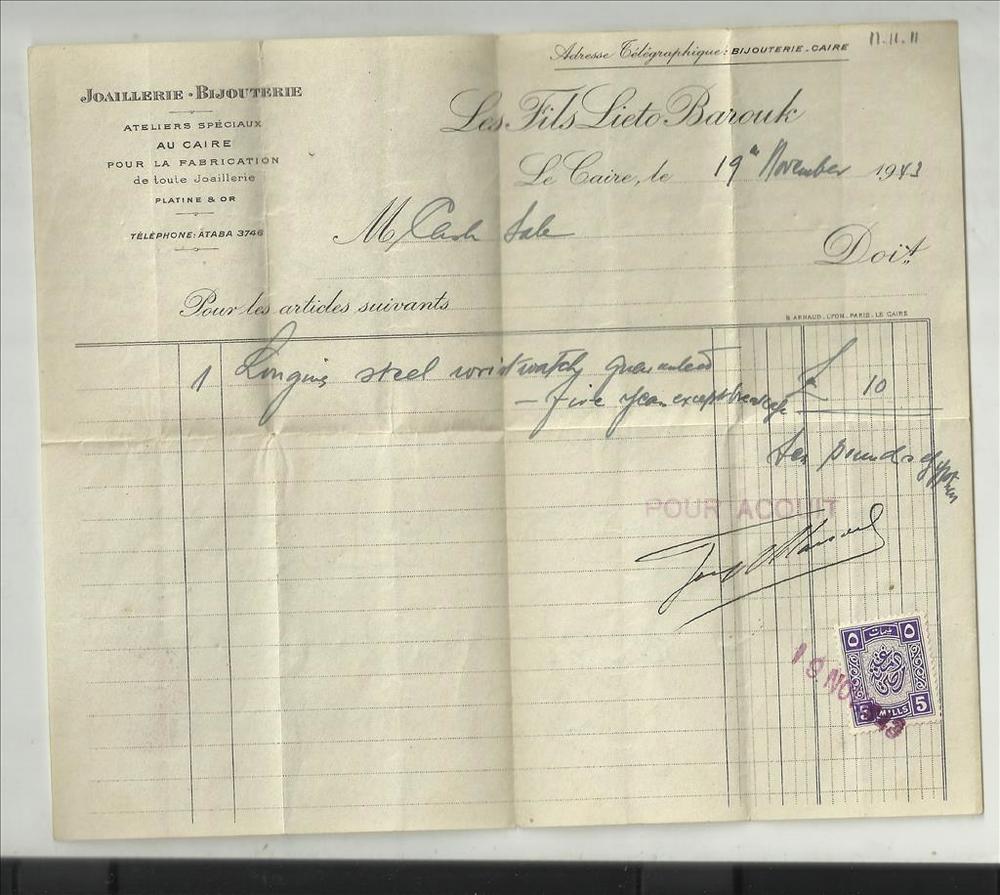 Adresse Télégraphique: BIJOUTERIE-CAIRE
11.11.11
JOAILLERIE - BIJOUTERIE
ATELIERS SPÉCIAUX
AU CAIRE
POUR LA FABRICATION
de toute Joaillerie
PLATINE & OR
TÉLÉPHONE: ATABA 3746
Les Fils Lieto Barouk
Le Caire, le 19th November 1943
M Cash Sale
Doit
Pour les articles suivants
B. ARNAUD. LYON. PARIS. LE CAIRE
1 Longines steel wristwatch guaranteed £ 10
- five years except breakage
ten pounds egyptian
POUR ACQUIT
٥ مليمات ٥
19 NOV 1943
5 MILLS 5